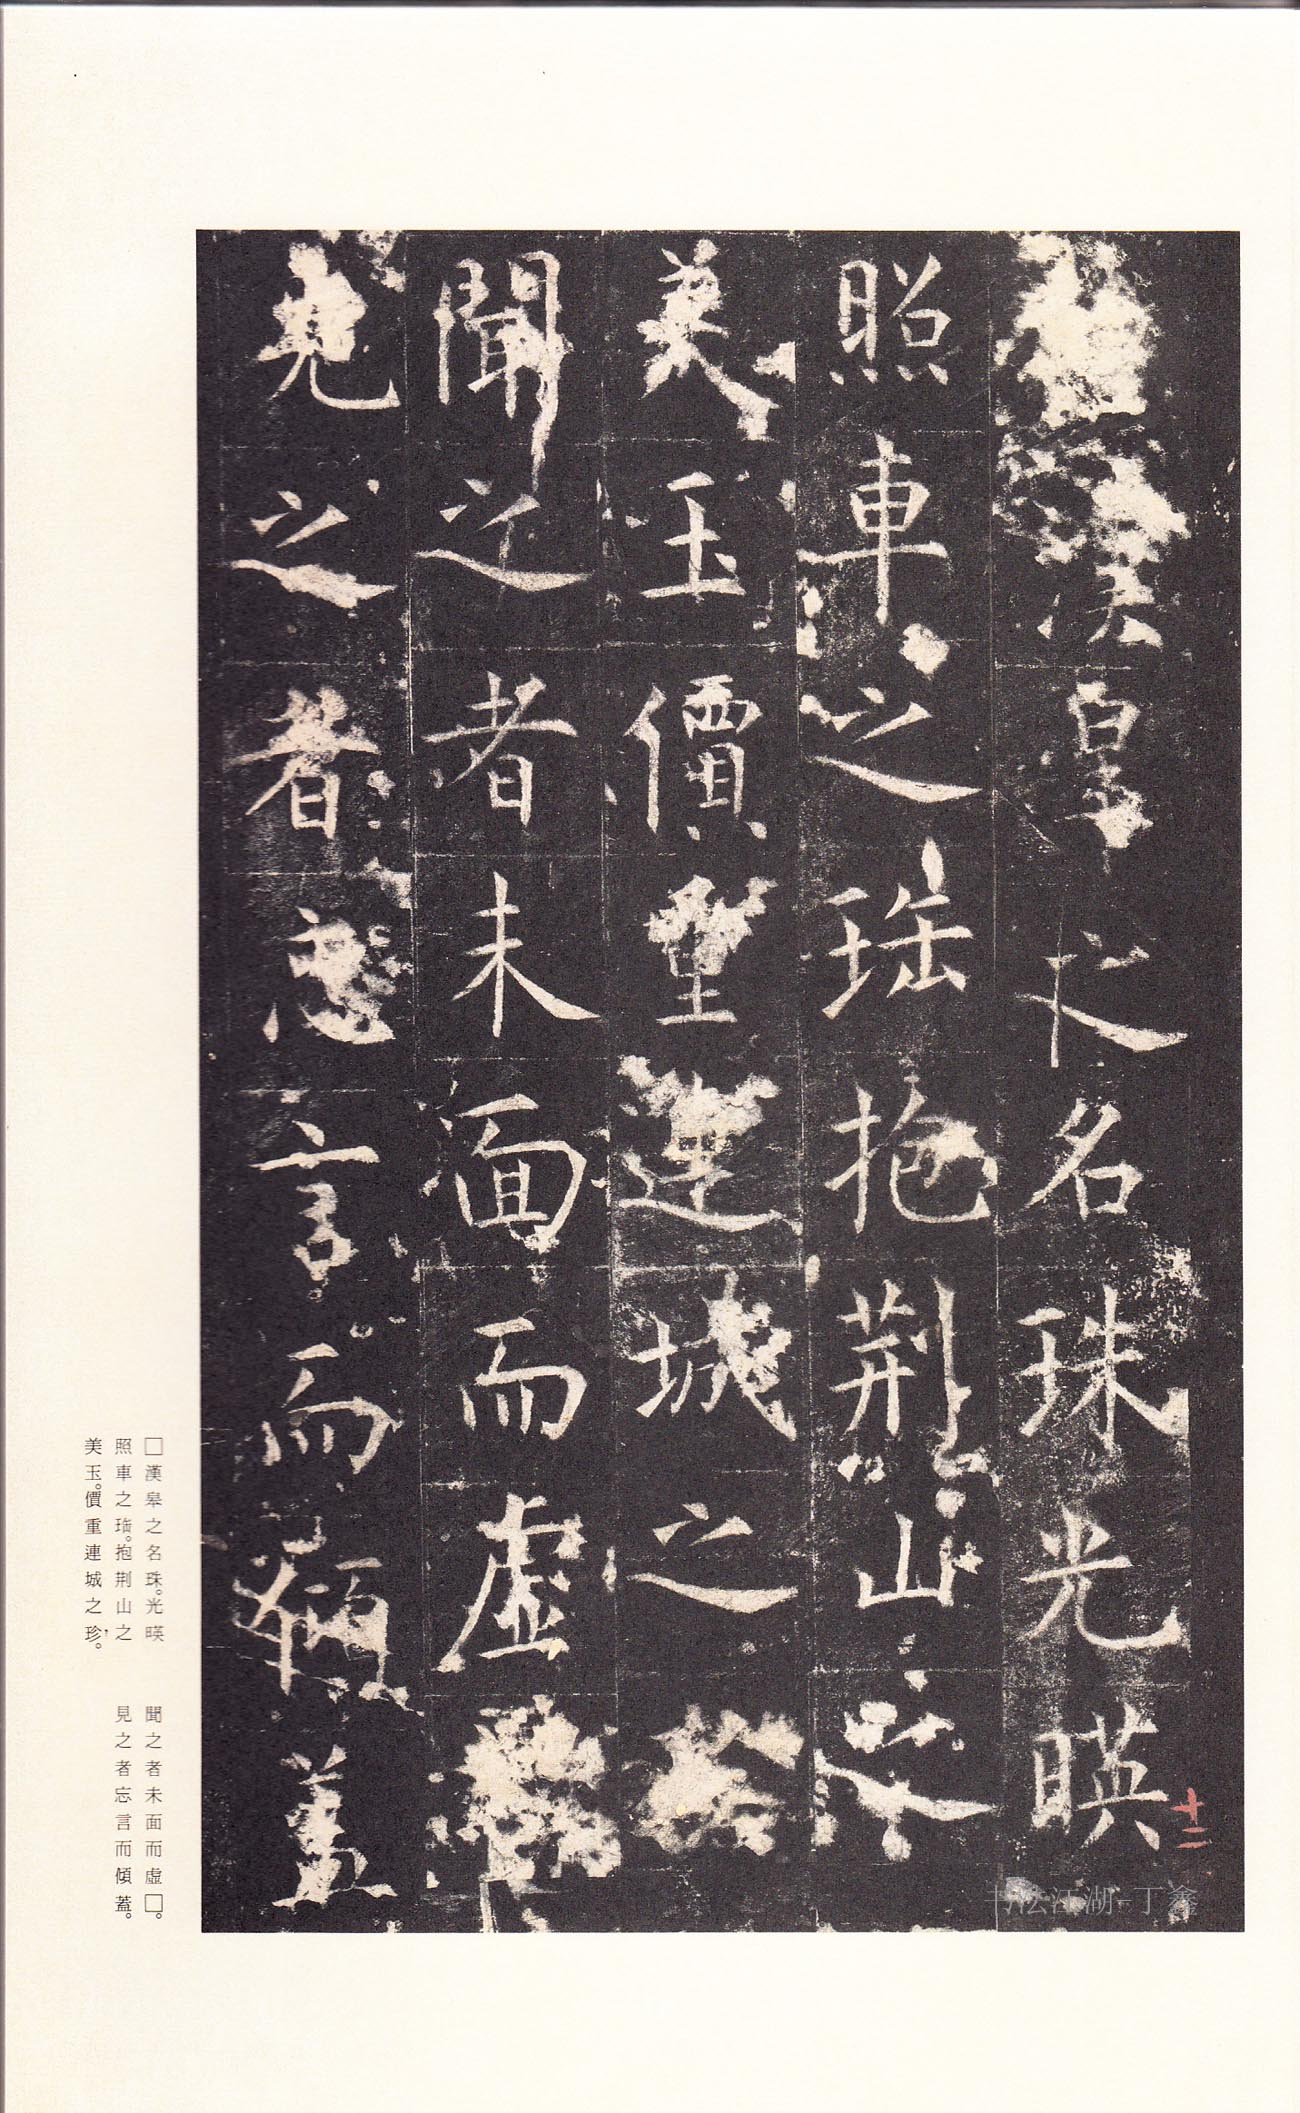 漢皋之名珠光暎
照車之瑎抱荆山之
美玉價重連城之
聞之者未面而虛
見之者忘言而傾蓋
十二
□漢皋之名珠。光暎
照車之瑎。抱荆山之
美玉。價重連城之珍。
聞之者未面而虛□。
見之者忘言而傾蓋。
书法江湖-丁鑫